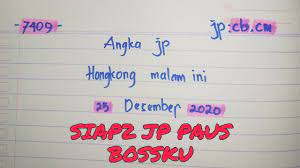 - 7409 - jp:cb.cm
Angka jp
Hongkong malam ini
25 Desember 2020
SIAP2 JP PAUS
BOSSKU